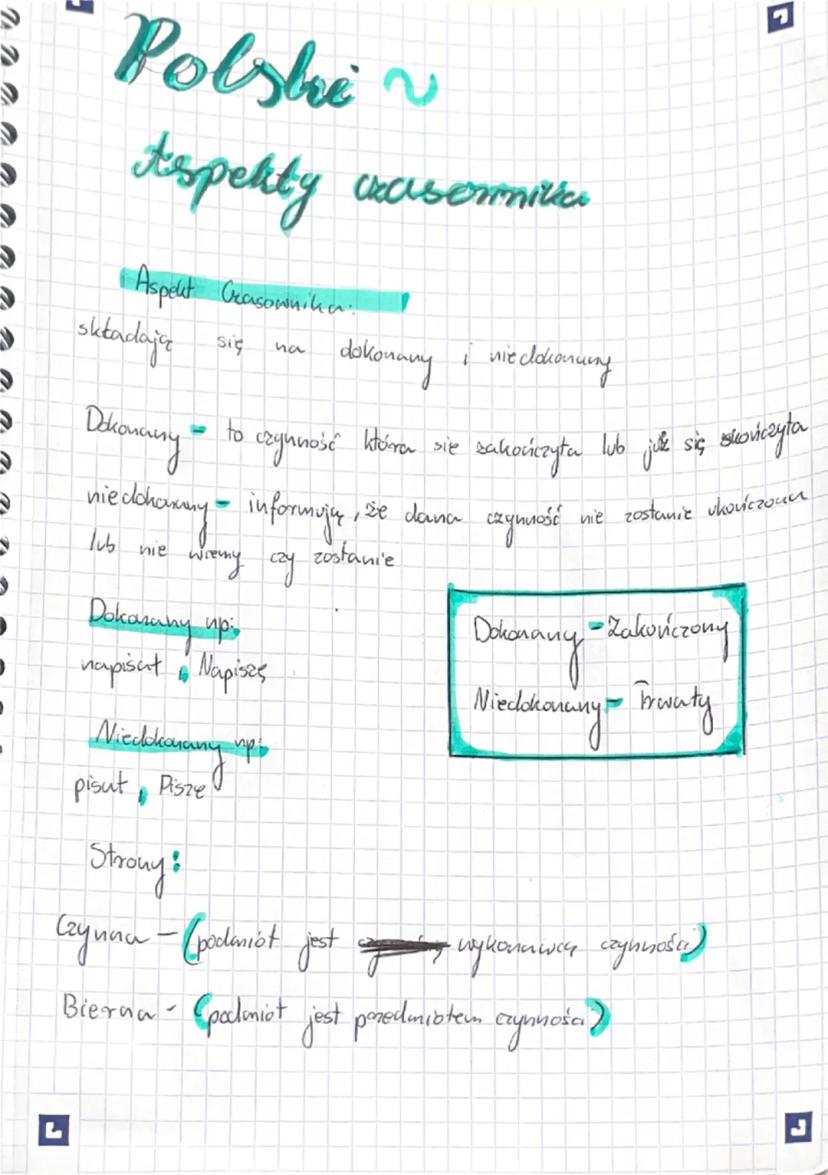 Polski ~
Aspekty czasownika
Aspekt Czasownika:
składają się na dokonany i niedokonany
Dokonany - to czynność która sie zakończyła lub już się skończyła
niedokonany - informują, że dana czynność nie zostanie ukończona
lub nie wiemy czy zostanie
Dokonany np:
napisał, Napiszę
Niedokonany np:
pisał, Pisze
Dokonany - Zakończony
Niedokonany - Trwały
Strony:
Czynna - (podmiot jest wykonawcą czynności)
Bierna - (podmiot jest przedmiotem czynności)